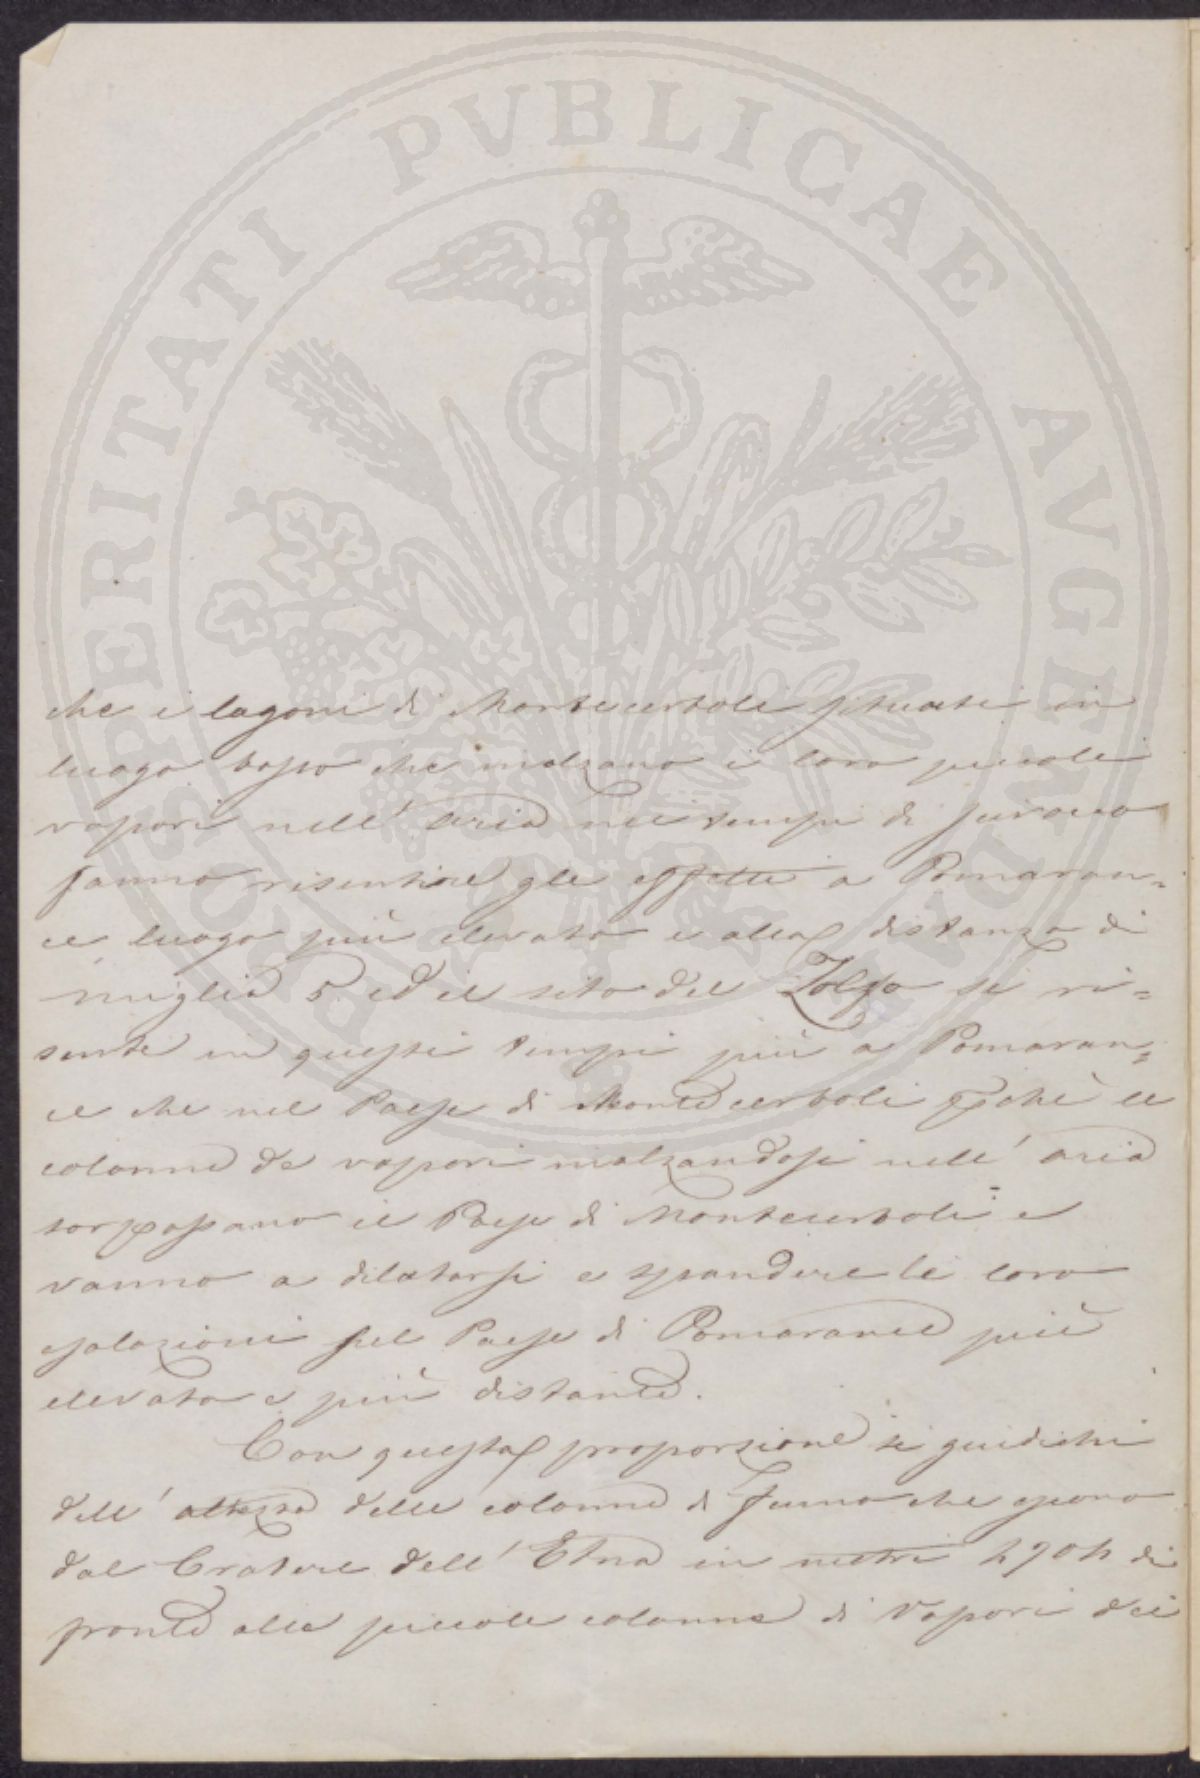 PROSPERITATI PVBLICAE AVGENDAE
che i lagoni di Montecerboli situati in
luogo basso che inalzano i loro piccoli
vapori nell' aria nei tempi di scirocco
fanno risentire gli effetti a Pomaran=
ce luogo più elevato e alla distanza di
miglia 5. ed il del Zolfo si ri=
sente in questi tempi più a Pomaran=
ce che nel Paese di Montecerboli le
colonne de vapori inalzandosi nell' aria
sorpassano il Paese di Montecerboli e
vanno a dilatarsi e spandere le loro
esalazioni sul Paese di Pomarance più
elevato e più distante.
Con questa proporzione si giudichi
dell' altezza delle colonne di fumo che escono
dal Cratere dell' Etna in metri di
fronte alle piccole colonne di vapori dei